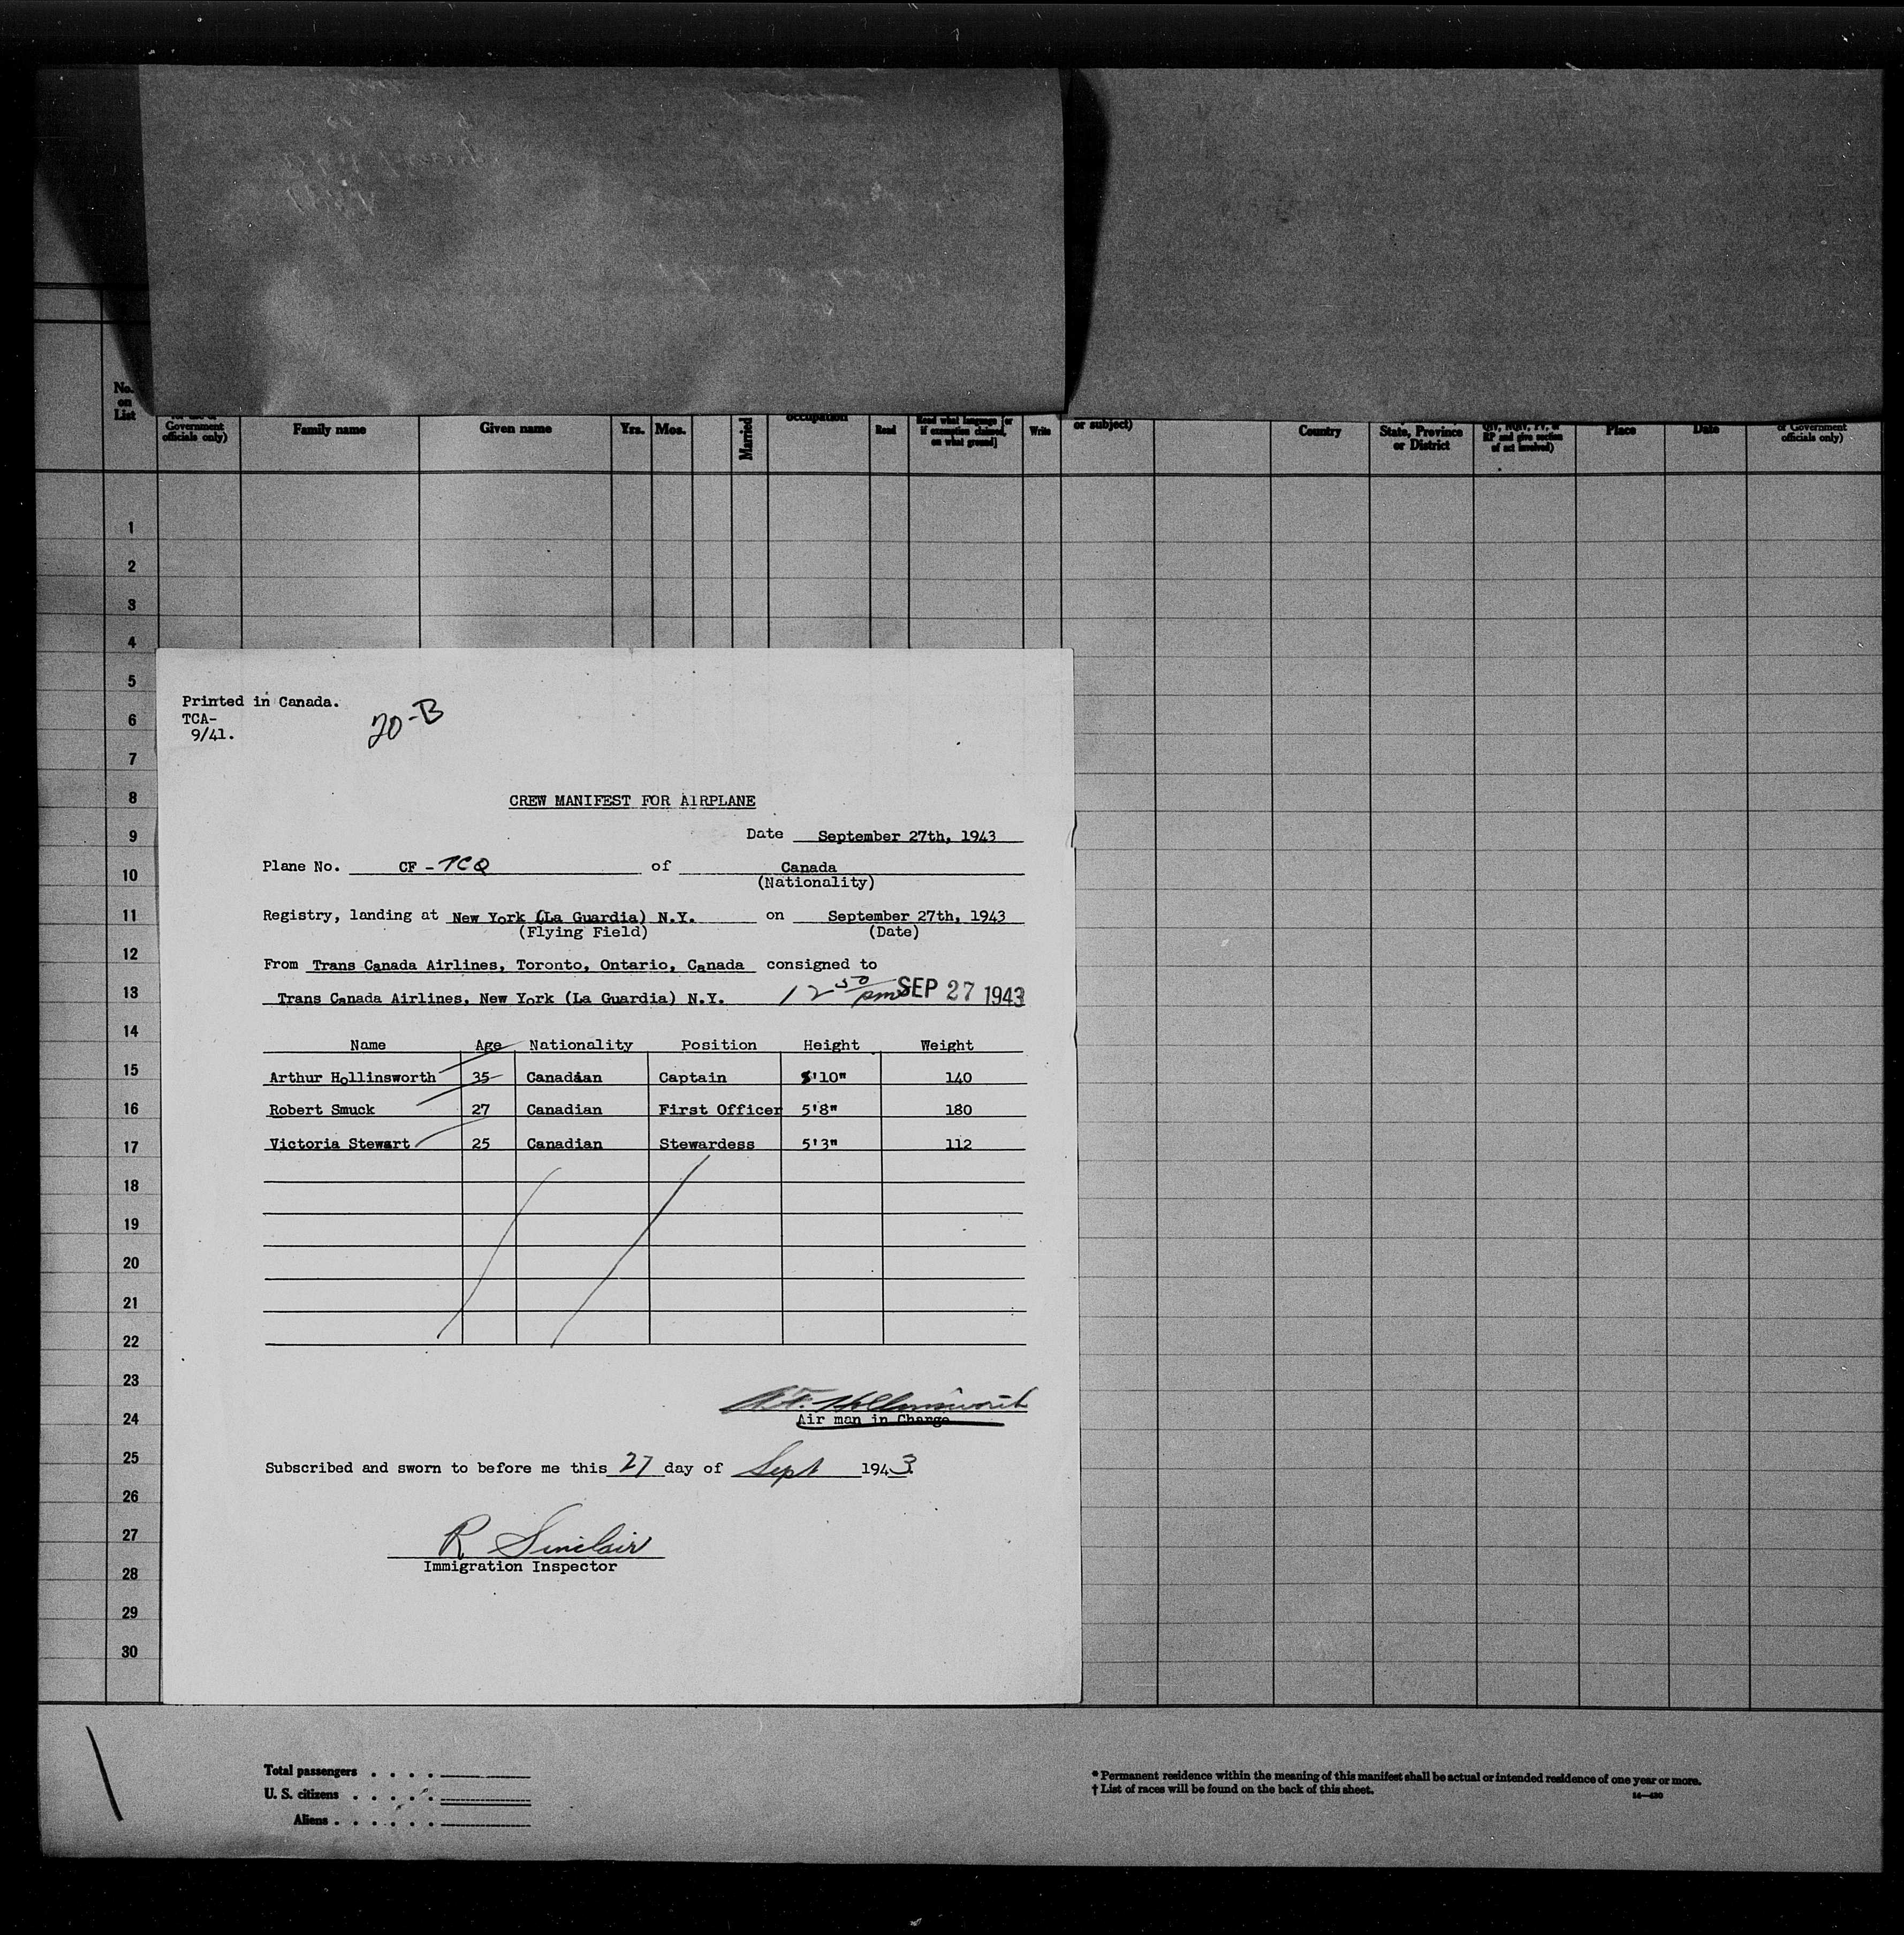 No.
on
List
Government
officials only)
Family name
Given name
Yrs.
Mos.
Married
occupation
Read
Read what language [or
if exemption claimed,
on what ground]
Write
or subject)
Country
State, Province
or District
RP and give section
of act involved)
Place
Date
of Government
officials only)
1
2
3
4
5
6
7
8
9
10
11
12
13
14
15
16
17
18
19
20
21
22
23
24
25
26
27
28
29
30
Printed in Canada.
TCA-
9/41.
20-B
CREW MANIFEST FOR AIRPLANE
Date September 27th, 1943
Plane No. CF - TCQ of Canada
(Nationality)
Registry, landing at New York (La Guardia) N.Y. on September 27th, 1943
(Flying Field) (Date)
From Trans Canada Airlines, Toronto, Ontario, Canada consigned to
Trans Canada Airlines, New York (La Guardia) N.Y. 12 50 pm SEP 27 1943
Name Age Nationality Position Height Weight
Arthur Hollinsworth 35 Canadian Captain 5'10" 140
Robert Smuck 27 Canadian First Officer 5'8" 180
Victoria Stewart 25 Canadian Stewardess 5'3" 112
A.F. Hollinsworth
Air man in Charge
Subscribed and sworn to before me this 27 day of Sept 1943
R Sinclair
Immigration Inspector
Total passengers . . . .
U. S. citizens . . . . .
Aliens . . . . . .
* Permanent residence within the meaning of this manifest shall be actual or intended residence of one year or more.
† List of races will be found on the back of this sheet.